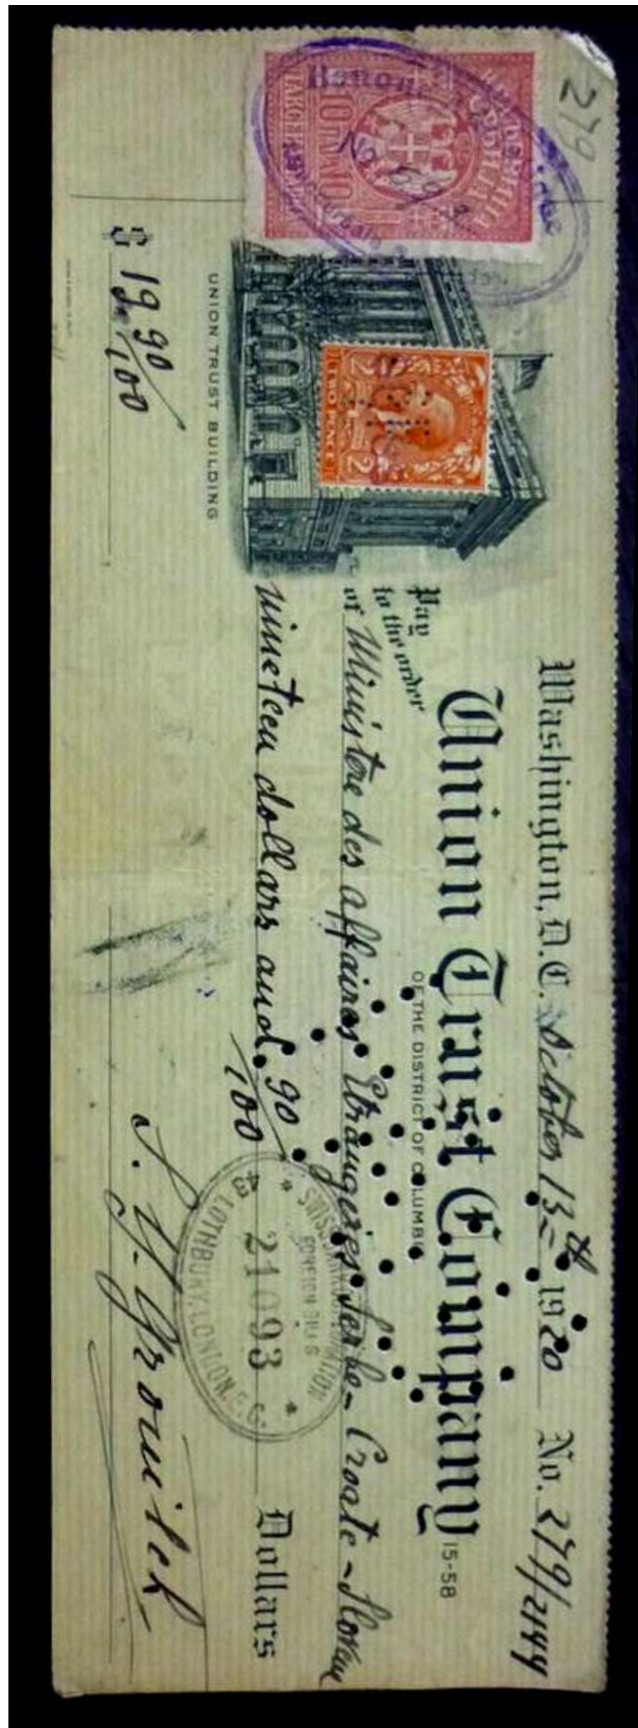 279
Washington, D.C. October 13th 1920 No. 279/2144
Union Trust Company 15-58
OF THE DISTRICT OF COLUMBIA
Pay
to the order
of Ministère des affaires Etrangères Serbo-Croate-Slovène
nineteen dollars and 90/100 Dollars
UNION TRUST BUILDING
$ 19 90/100
TWO PENCE
2 2
SWISS BANK CORPORATION
FOREIGN BILLS
21093
43 LOTHBURY, LONDON. E.C.